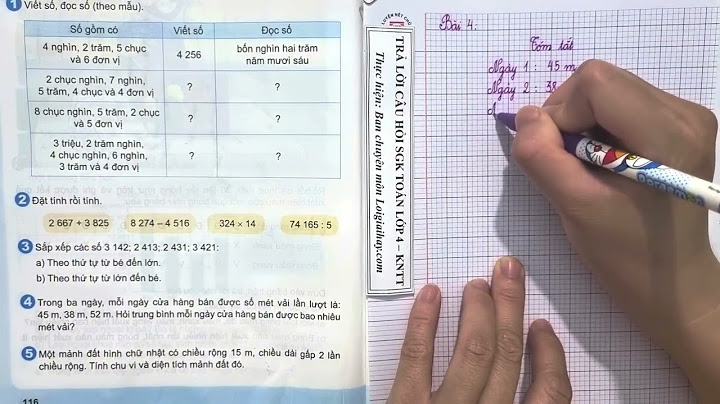 1 Viết số, đọc số (theo mẫu).
Số gồm có Viết số Đọc số
4 nghìn, 2 trăm, 5 chục
và 6 đơn vị
4 256
bốn nghìn hai trăm
năm mươi sáu
2 chục nghìn, 7 nghìn,
5 trăm, 4 chục và 4 đơn vị
? ?
8 chục nghìn, 5 trăm, 2 chục
và 5 đơn vị
? ?
3 triệu, 2 trăm nghìn,
4 chục nghìn, 6 nghìn,
3 trăm và 4 đơn vị
? ?
2 Đặt tính rồi tính.
2 667 + 3 825 8 274 – 4 516 324 × 14 74 165 : 5
3 Sắp xếp các số 3 142; 2 413; 2 431; 3 421:
a) Theo thứ tự từ bé đến lớn.
b) Theo thứ tự từ lớn đến bé.
4 Trong ba ngày, mỗi ngày cửa hàng bán được số mét vải lần lượt là:
45 m, 38 m, 52 m. Hỏi trung bình mỗi ngày cửa hàng bán được bao nhiêu
mét vải?
5 Một mảnh đất hình chữ nhật có chiều rộng 15 m, chiều dài gấp 2 lần
chiều rộng. Tính chu vi và diện tích mảnh đất đó.
116
LUYỆN NÉT CHỮ
TRẢ LỜI CÂU HỎI SGK TOÁN LỚP 4 – KNTT
Thực hiện: Ban chuyên môn Loigiaihay.com
Bài 4:
Tóm tắt
Ngày 1 : 45 m
Ngày 2 : 38